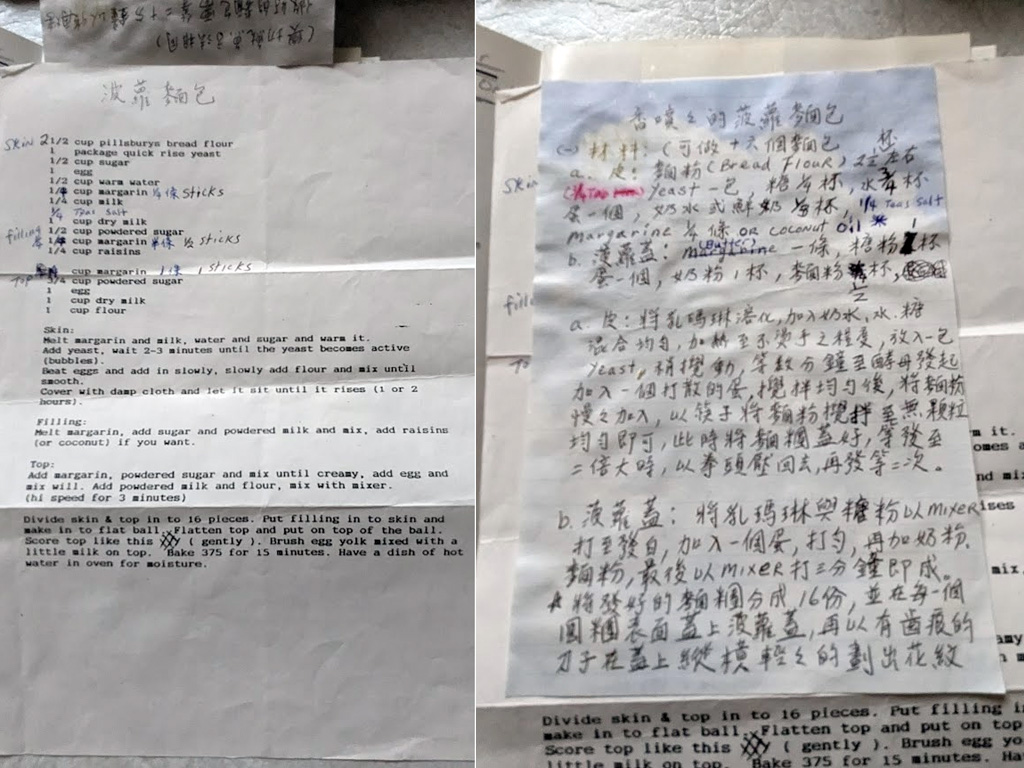 菠蘿麵包
Skin 2 1/2 cup pillsburys bread flour
1 package quick rise yeast
1/2 cup sugar
1 egg
1/2 cup warm water
cup margarin 3/4條 sticks
1/4 cup milk
1/4 Teas Salt
1 cup dry milk
1/2 cup powdered sugar
filling cup margarin 半條 1/2 sticks
1/4 cup raisins
Top cup margarin 1條 1 sticks
3/4 cup powdered sugar
1 egg
1 cup dry milk
1 cup flour
Skin:
Melt margarin and milk, water and sugar and warm it.
Add yeast, wait 2-3 minutes until the yeast becomes active
(bubbles).
Beat eggs and add in slowly, slowly add flour and mix until
smooth.
Cover with damp cloth and let it sit until it rises (1 or 2
hours).
Filling:
Melt margarin, add sugar and powdered milk and mix, add raisins
(or coconut) if you want.
Top:
Add margarin, powdered sugar and mix until creamy, add egg and
mix will. Add powdered milk and flour, mix with mixer.
(hi speed for 3 minutes)
Divide skin & top in to 16 pieces. Put filling in to skin and
make in to flat ball. Flatten top and put on top of the ball.
Score top like this ( gently ). Brush egg yolk mixed with a
little milk on top. Bake 375 for 15 minutes. Have a dish of hot
water in oven for moisture.
香噴々的菠蘿麵包
(一) 材料: (可做十六個麵包
a. 皮: 麵粉(Bread Flour) 2½杯左右
Yeast 一包, 糖 杯, 水 杯
蛋一個, 奶水或鮮奶 杯, 1/4 Teas Salt
margarine 條 OR coconut oil *
b. 菠蘿蓋: margarine (Butter) 一條, 糖粉 1 杯
蛋一個, 奶粉1杯, 麵粉 杯,
a. 皮: 將乳瑪琳溶化, 加入奶水, 水, 糖
混合均勻, 加熱至不燙手之程度, 放入一包
Yeast, 稍攪動, 等數分鐘至酵母發起
加入一個打散的蛋, 攪拌均勻後, 將麵粉
慢々加入, 以筷子將麵粉攪拌至無顆粒
均勻即可, 此時將麵糰蓋好, 等發至
二倍大時, 以拳頭壓回去, 再發等二次。
b. 菠蘿蓋: 將乳瑪琳與糖粉以mixer
打至發白, 加入一個蛋, 打勻, 再加奶粉,
麵粉, 最後以mixer打三分鐘即成。
* 將發好的麵糰分成16份, 並在每一個
圓糰表面蓋上菠蘿蓋, 再以有齒痕的
刀子在蓋上縱橫輕々的劃出花紋
Divide skin & top in to 16 pieces. Put filling in
make in to flat ball. Flatten top and put on top
Score top like this ( gently ). Brush egg yo
little milk on top. Bake 375 for 15 minutes. Ha